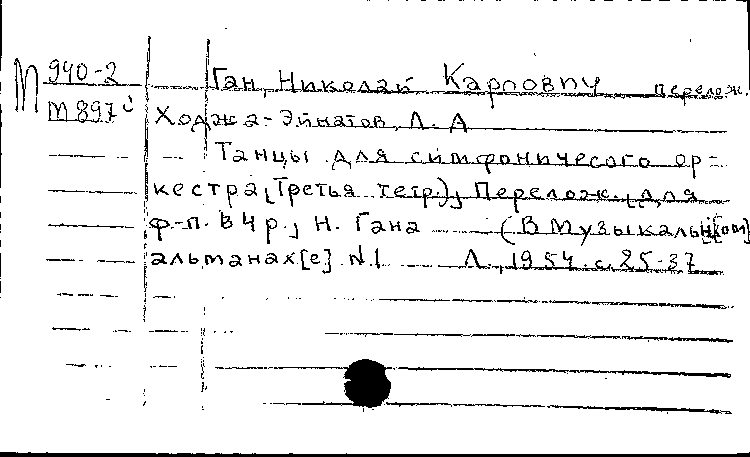 М 940-2 Ган, Николай Карлович перелож.
М 897 Ходжа-Эйнатов, Л. А
Танцы для симфоничесого ор=
кестра, (Третья тетр.), Перелож. для
ф-п. в 4 р., Н. Гана (В Музыкальн[ом]
альманах[е] №1 Л., 1954. с. 25-37